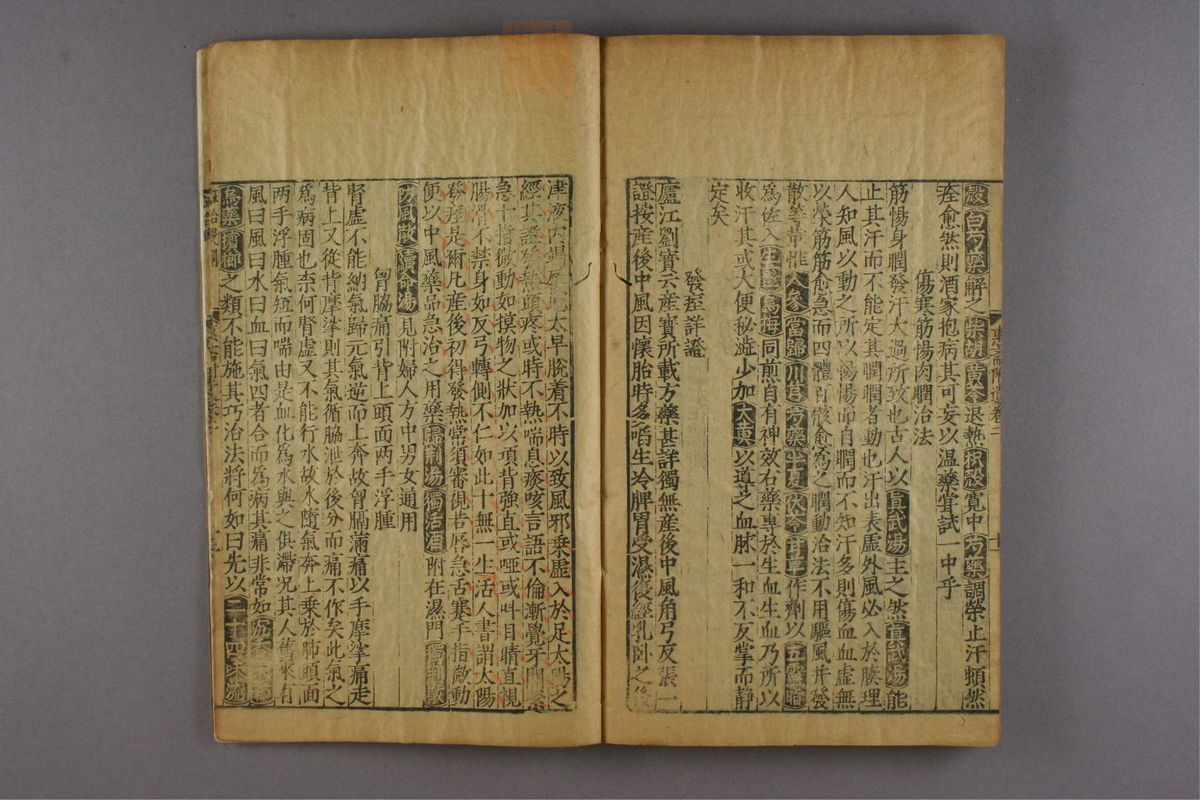 散白芍藥解之柴胡黃芩退熱枳殼寬中芍藥調榮止汗頓然
痊愈然則酒家抱病其可妄以温藥嘗試一中乎
傷寒筋惕肉瞤治法
筋惕身瞤發汗大過所致也古人以眞武湯主之然眞武湯能
止其汗而不能定其瞤瞤者動也汗出表虛外風必入於腠理
人知風以動之所以惕惕而自瞤而不知汗多則傷血血虛無
以榮筋筋愈急而四體百骸愈爲之瞤動治法不用驅風幷發
散等葯惟人參當歸川芎芍藥半夏茯苓甘草作劑以五靈脂
爲佐入生薑烏梅同煎自有神效右藥專於生血生血乃所以
收汗其或大便秘澁少加大黄以導之血脉一和不反掌而静
定矣
發痓詳證
廬江劉實云産寳所載方藥甚詳獨無産後中風角弓反張一
證按産後中風因懷胎時多啗生冷脾胃受濕復經乳卧之後
津液内竭 太早脫着不時以致風邪乗虛入於足太陽之
經其證發熱頭疼或時不熱喘息痰咳言語不倫漸覺牙關緊
急十指微動如摸物之狀加以項背強直或啞或呌目睛直視
腸滑不禁身如反弓轉側不仁如此十無一生活人書謂太陽
發痓是爾凡産後初得發熱常須審視若唇急舌蹇手指微動
便以中風藥品急治之用藥 湯獨活酒附在濕門 散
防風散續命湯見附婦人方中男女通用
胷脇痛引背上頭面兩手浮腫
腎虛不能納氣歸元氣逆而上奔故胷膈滿痛以手摩掌痛走
背上又從背摩掌則其氣循脇泄於後分而痛不作矣此氣之
爲病固也柰何腎虛又不能行水故水隨氣奔上乗於肺頭面
两手浮腫氣短而喘由是血化爲水與之俱滯况其人舊來有
風曰風曰水曰血曰氣四者合而爲病其痛非常如
烏藥檳榔之類不能施其巧治法將何如曰先以二十四味流